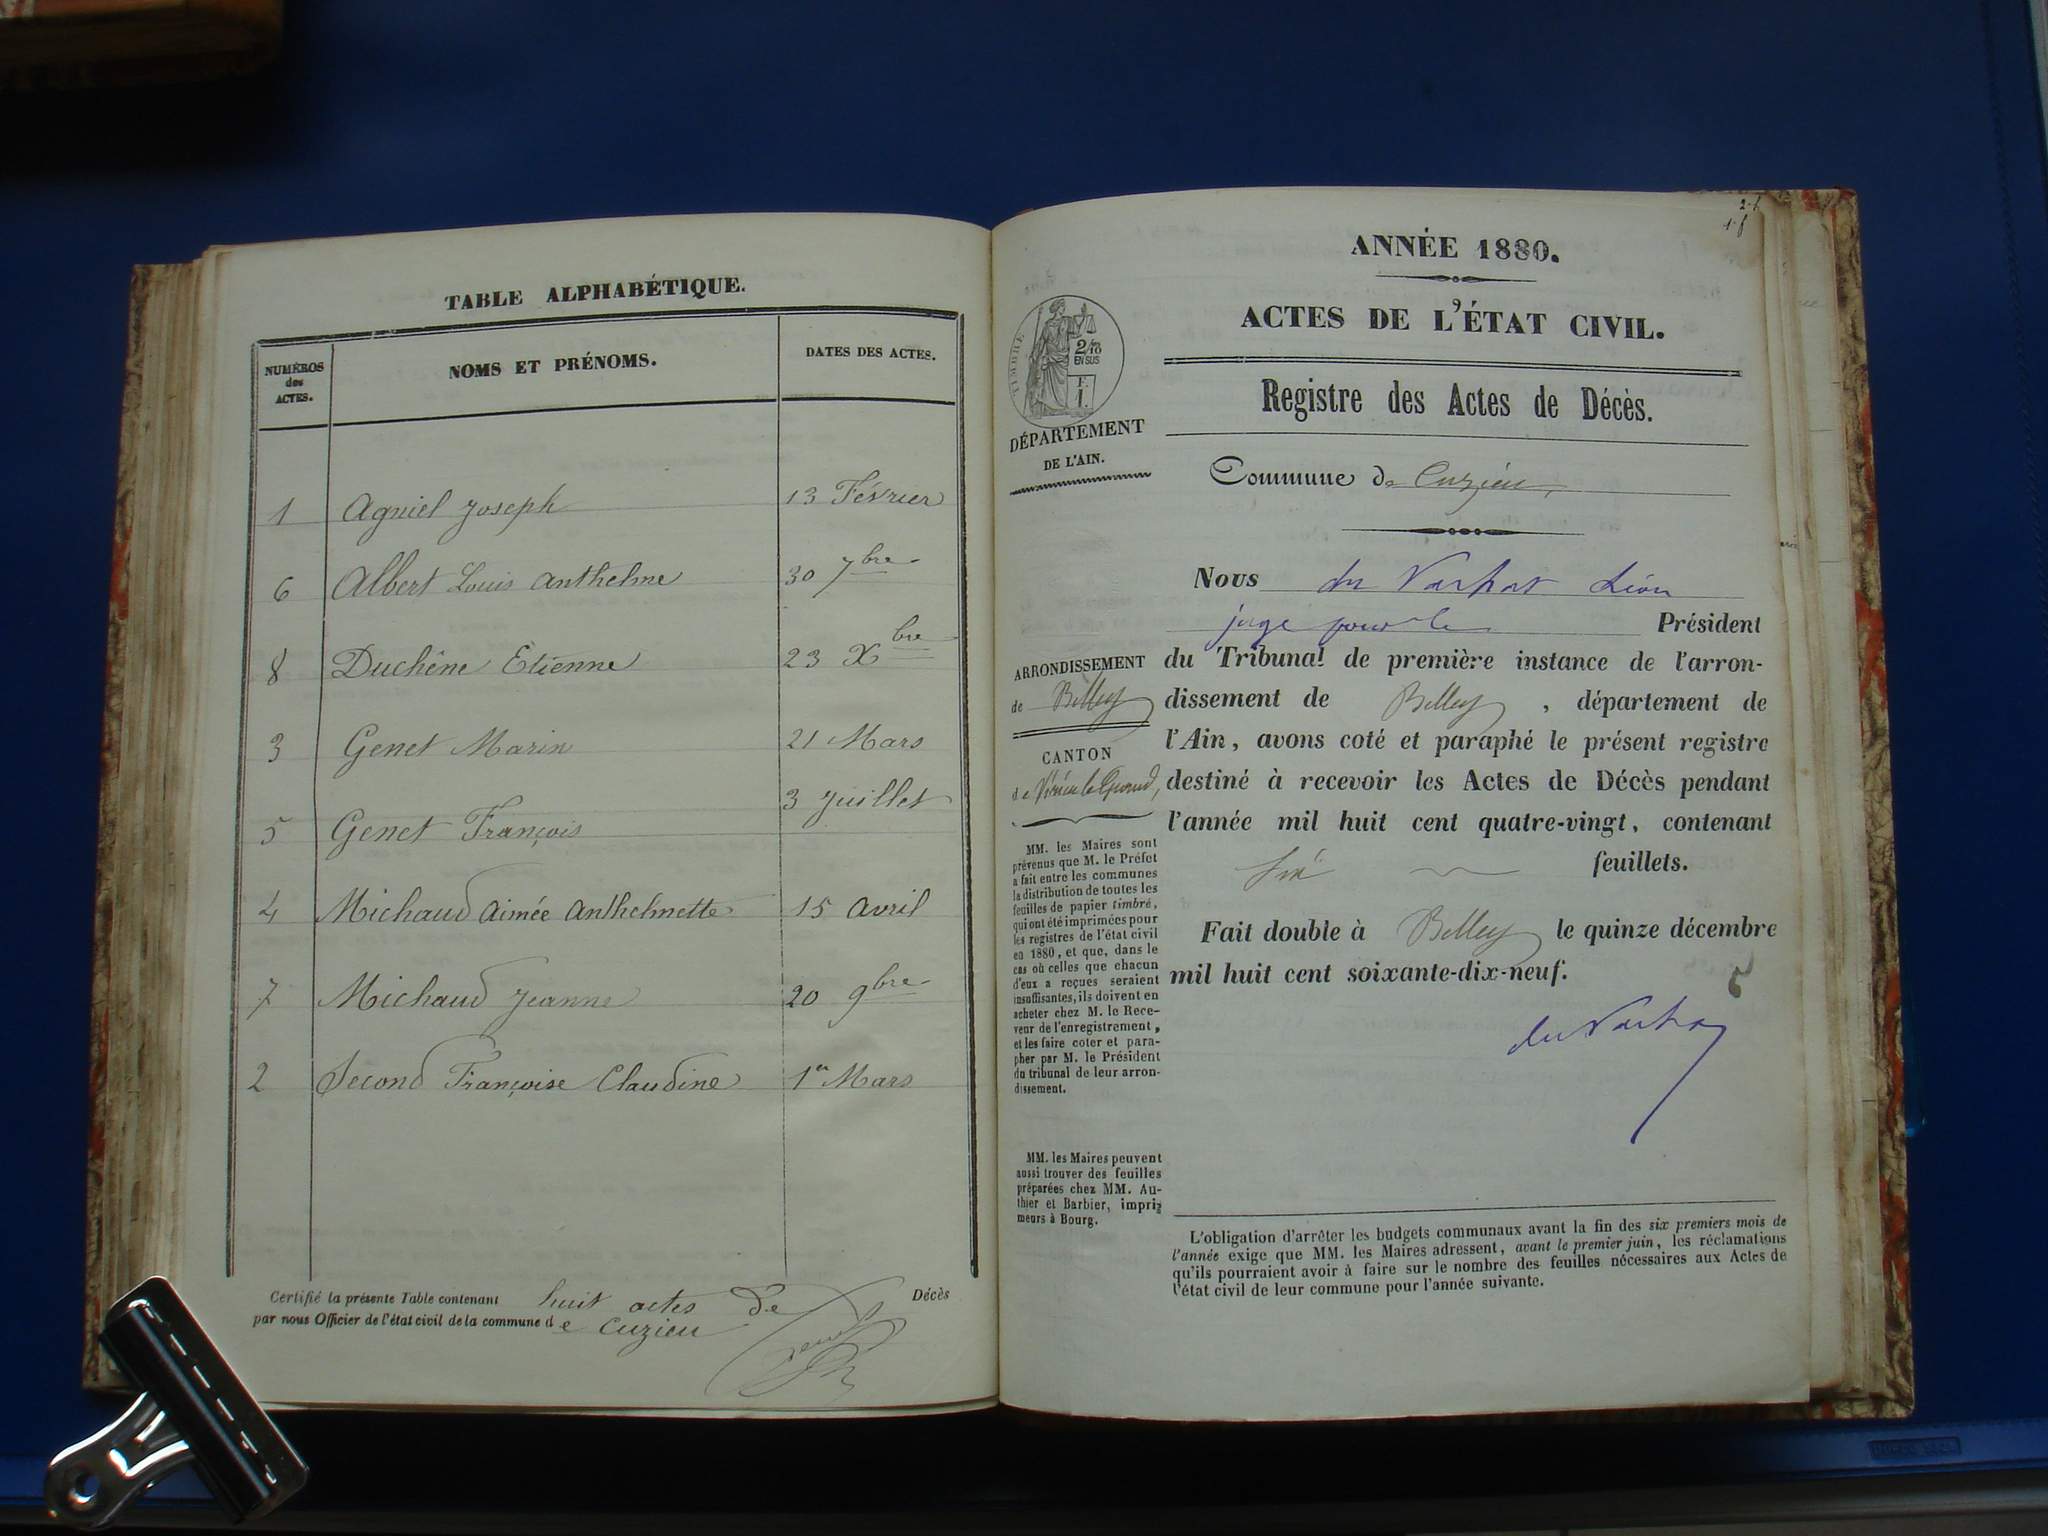 TABLE ALPHABÉTIQUE.
NUMÉROS
des
ACTES.
NOMS ET PRÉNOMS.
DATES DES ACTES.
1 Agniel Joseph 13 Février
6 Albert Louis Anthelme 30 7bre
8 Duchêne Etienne 23 Xbre
3 Genet Marin 21 Mars
5 Genet François 3 Juillet
4 Michaud Aimée Anthelmette 15 Avril
7 Michaud Jeanne 20 9bre
2 Second Françoise Claudine 1er Mars
Certifié la présente Table contenant huit actes de Décès
par nous Officier de l'état civil de la commune de Cuzieu
ANNÉE 1880.
ACTES DE L'ÉTAT CIVIL.
Registre des Actes de Décès.
TIMBRE
2/10
EN SUS
F.
1.
DÉPARTEMENT
DE L'AIN.
ARRONDISSEMENT
de Belley
CANTON
de Virieu le Grand,
MM. les Maires sont
prévenus que M. le Préfet
a fait entre les communes
la distribution de toutes les
feuilles de papier timbré,
qui ont été imprimées pour
les registres de l'état civil
en 1880, et que, dans le
cas où celles que chacun
d'eux a reçues seraient
insuffisantes, ils doivent en
acheter chez M. le Rece-
veur de l'enregistrement,
et les faire coter et para-
pher par M. le Président
du tribunal de leur arron-
dissement.
MM. les Maires peuvent
aussi trouver des feuilles
préparées chez MM. Au-
thier et Barbier, impri-
meurs à Bourg.
Commune de Cuzieu,
Nous du Léon
juge pour le Président
du Tribunal de première instance de l'arron-
dissement de Belley, département de
l'Ain, avons coté et paraphé le présent registre
destiné à recevoir les Actes de Décès pendant
l'année mil huit cent quatre-vingt, contenant
six feuillets.
Fait double à Belley le quinze décembre
mil huit cent soixante-dix-neuf.
L'obligation d'arrêter les budgets communaux avant la fin des six premiers mois de
l'année exige que MM. les Maires adressent, avant le premier juin, les réclamations
qu'ils pourraient avoir à faire sur le nombre des feuilles nécessaires aux Actes de
l'état civil de leur commune pour l'année suivante.